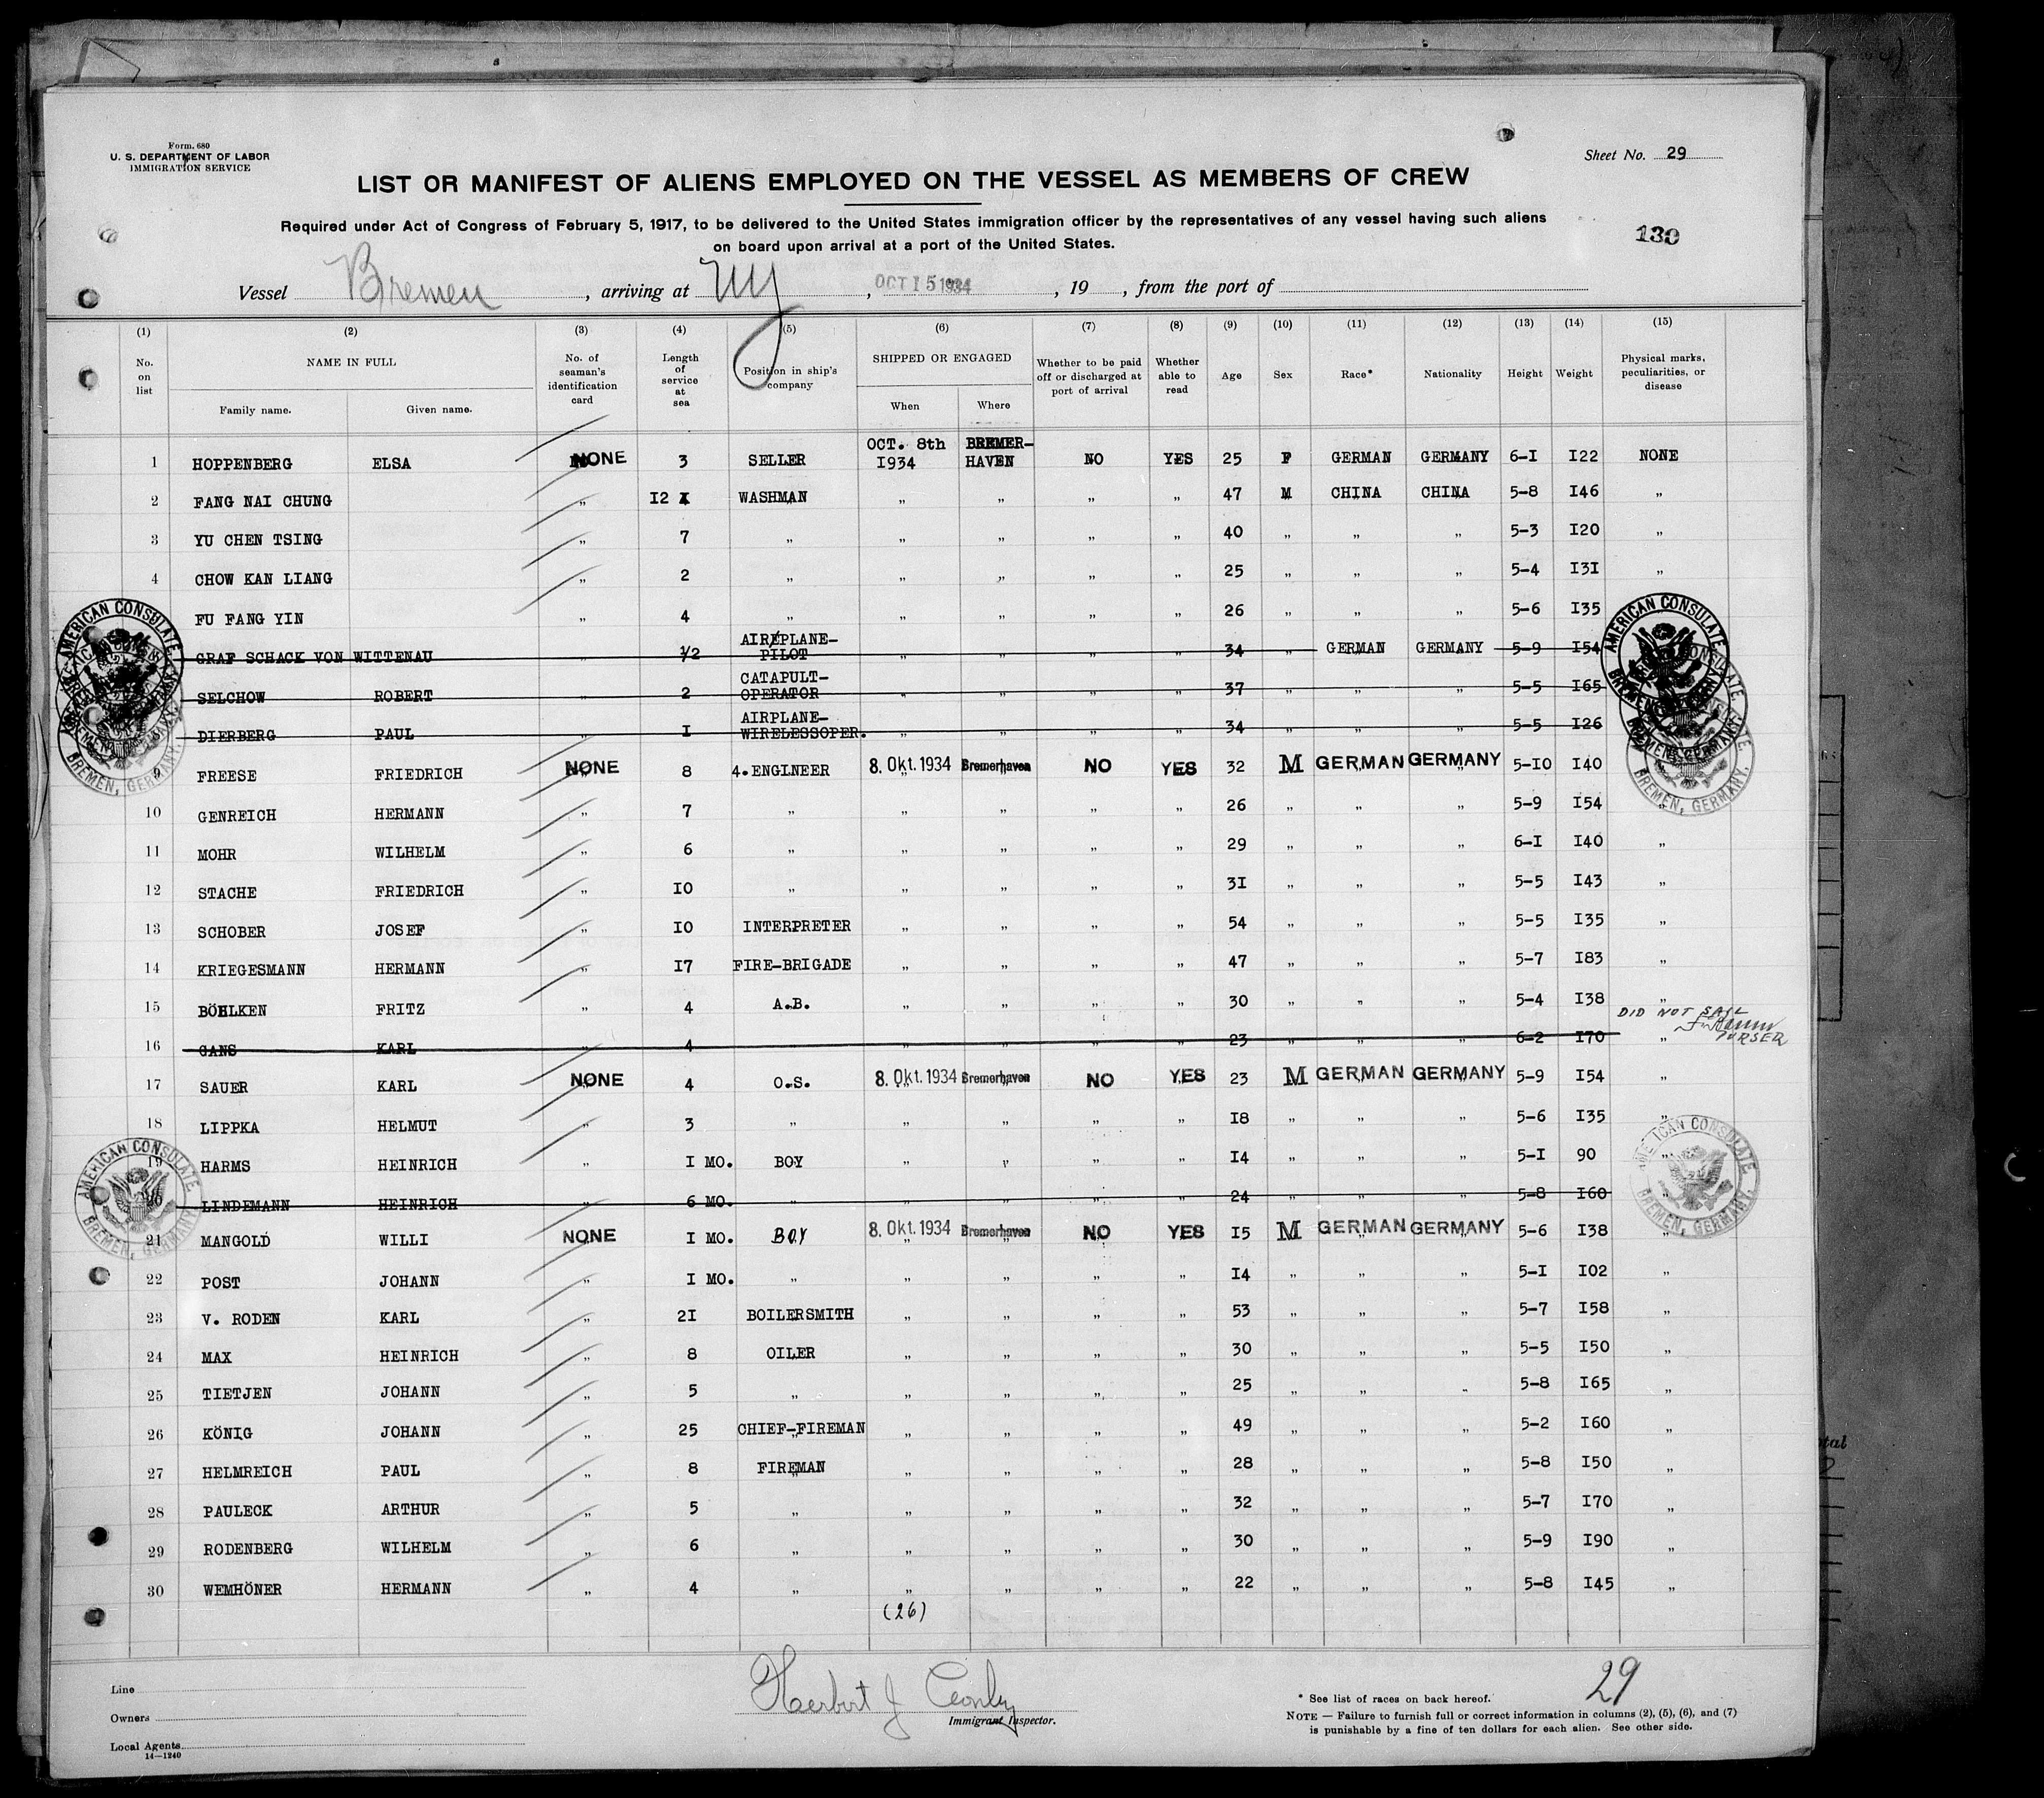 Form. 680
U. S. DEPARTMENT OF LABOR
IMMIGRATION SERVICE
Sheet No. 29
LIST OR MANIFEST OF ALIENS EMPLOYED ON THE VESSEL AS MEMBERS OF CREW
Required under Act of Congress of February 5, 1917, to be delivered to the United States immigration officer by the representatives of any vessel having such aliens
on board upon arrival at a port of the United States.
130
Vessel Bremen , arriving at NY , OCT 15 1934 , 19 , from the port of
(1) (2) (3) (4) (5) (6) (7) (8) (9) (10) (11) (12) (13) (14) (15)
No. on list NAME IN FULL Family name. Given name. No. of seaman's identification card Length of service at sea Position in ship's company SHIPPED OR ENGAGED When Where Whether to be paid off or discharged at port of arrival Whether able to read Age Sex Race* Nationality Height Weight Physical marks, peculiarities, or disease
1 HOPPENBERG ELSA NONE 3 SELLER OCT. 8th 1934 BREMER-HAVEN NO YES 25 F GERMAN GERMANY 6-I I22 NONE
2 FANG NAI CHUNG " I2 WASHMAN " " " " 47 M CHINA CHINA 5-8 I46 "
3 YU CHEN TSING " 7 " " " " " 40 " " " 5-3 I20 "
4 CHOW KAN LIANG " 2 " " " " " 25 " " " 5-4 I3I "
FU FANG YIN " 4 " " " " " 26 " " " 5-6 I35
GRAF SCHACK VON WITTENAU " ½ AIRPLANE-PILOT " " " " 34 " GERMAN GERMANY 5-9 I54
SELCHOW ROBERT 2 CATAPULT-OPERATOR " " " " 37 " " " 5-5 I65
DIERBERG PAUL " I AIRPLANE-WIRELESSOPER. " " " " 34 " " " 5-5 I26
9 FREESE FRIEDRICH NONE 8 4.ENGINEER 8. Okt. 1934 Bremerhaven NO YES 32 M GERMAN GERMANY 5-10 I40
10 GENREICH HERMANN " 7 " " " " " 26 " " " 5-9 I54
11 MOHR WILHELM " 6 " " " " " 29 " " " 6-I I40 "
12 STACHE FRIEDRICH " I0 " " " " " 3I " " " 5-5 I43 "
13 SCHOBER JOSEF " I0 INTERPRETER " " " " 54 " " " 5-5 I35 "
14 KRIEGESMANN HERMANN " I7 FIRE-BRIGADE " " " " 47 " " " 5-7 I83 "
15 BÖHLKEN FRITZ " 4 A.B. " " " " 30 " " " 5-4 I38 "
DID NOT SAIL
PURSER
16 GANS KARL " 4 " " " " " 23 " " " 6-2 I70 "
17 SAUER KARL NONE 4 O.S. 8. Okt. 1934 Bremerhaven NO YES 23 M GERMAN GERMANY 5-9 I54 "
18 LIPPKA HELMUT " 3 " " " " " I8 " " " 5-6 I35 "
19 HARMS HEINRICH " I MO. BOY " " " " I4 " " " 5-I 90 "
20 LINDEMANN HEINRICH " 6 MO. " " " " " 24 " " " 5-8 I60 "
21 MANGOLD WILLI NONE I MO. BOY 8. Okt. 1934 Bremerhaven NO YES I5 M GERMAN GERMANY 5-6 I38 "
22 POST JOHANN " I MO. " " " " " I4 " " " 5-I I02 "
23 V. RODEN KARL " 2I BOILERSMITH " " " " 53 " " " 5-7 I58 "
24 MAX HEINRICH " 8 OILER " " " " 30 " " " 5-5 I50 "
25 TIETJEN JOHANN " 5 " " " " " 25 " " " 5-8 I65 "
26 KÖNIG JOHANN " 25 CHIEF-FIREMAN " " " " 49 " " " 5-2 I60 "
27 HELMREICH PAUL " 8 FIREMAN " " " " 28 " " " 5-8 I50 "
28 PAULECK ARTHUR " 5 " " " " " 32 " " " 5-7 I70 "
29 RODENBERG WILHELM " 6 " " " " " 30 " " " 5-9 I90 "
30 WEMHÖNER HERMANN " 4 " " " " " 22 " " " 5-8 I45 "
(26)
AMERICAN CONSULATE BREMEN, GERMANY.
AMERICAN CONSULATE BREMEN, GERMANY.
AMERICAN CONSULATE BREMEN, GERMANY.
AMERICAN CONSULATE BREMEN, GERMANY.
Line
Owners
Local Agents
14—1240
Herbert J
Immigrant Inspector.
29
* See list of races on back hereof.
NOTE — Failure to furnish full or correct information in columns (2), (5), (6), and (7)
is punishable by a fine of ten dollars for each alien. See other side.